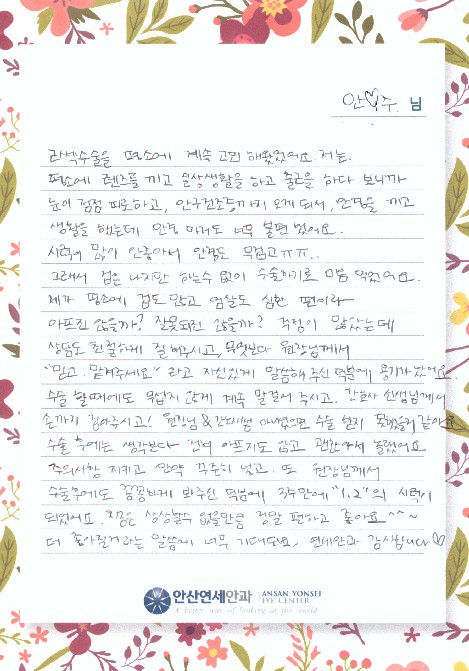 안♡주. 님
라섹수술을 평소에 계속 고민 해왔었어요. 저는.
평소에 렌즈를 끼고 일상생활을 하고 출근을 하다 보니까
눈이 점점 피로하고, 안구건조증까지 오게 되서, 안경을 끼고
생활을 했는데 안경 마저도 너무 불편 했어요.
시력이 많이 안좋아서 안경도 무겁고ㅠㅠ..
그래서 겁은 나지만 하는수 없이 수술하기로 마음 먹었어요.
제가 평소에 겁도 많고 엄살도 심한 편이라
아프진 않을까? 잘못되진 않을까? 걱정이 많았는데
상담도 친절하게 잘 해주시고, 무엇보다 원장님께서
"믿고 맡겨주세요" 라고 자신있게 말씀해 주신 덕분에 용기가 났어요.
수술 할때에도 무섭지 않게 계속 말걸어 주시고. 간호사 선생님께서
손까지 잡아주시고! 원장님&간호사쌤 아니였으면 수술 현지 못했을거 같아요
수술 후에는 생각보다 전혀 아프지도 않고 괜찮아서 놀랬어요
주의사항 지키고 안약 꾸준히 넣고. 또 원장님께서
수술후에도 꼼꼼하게 봐주신 덕분에 3주만에 "1.2"의 시력이
되었어요. 지금은 상상할수 없을만큼 정말 편하고 좋아요 ^^~
더 좋아질거라는 말씀에 너무 기대돼요. 연세안과 감사합니다♡
안산연세안과 ANSAN YONSEI
EYE CENTER
A better way of looking at the world